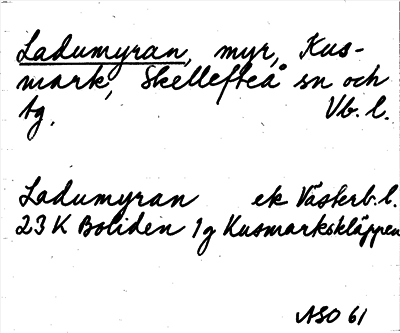 Ladumyran, myr, Kus-
mark, Skellefteå sn och
tg. Vb. l.
Ladumyran ek Västerb. l.
23 K Boliden 1g Kusmarkskläppen
ASO 61